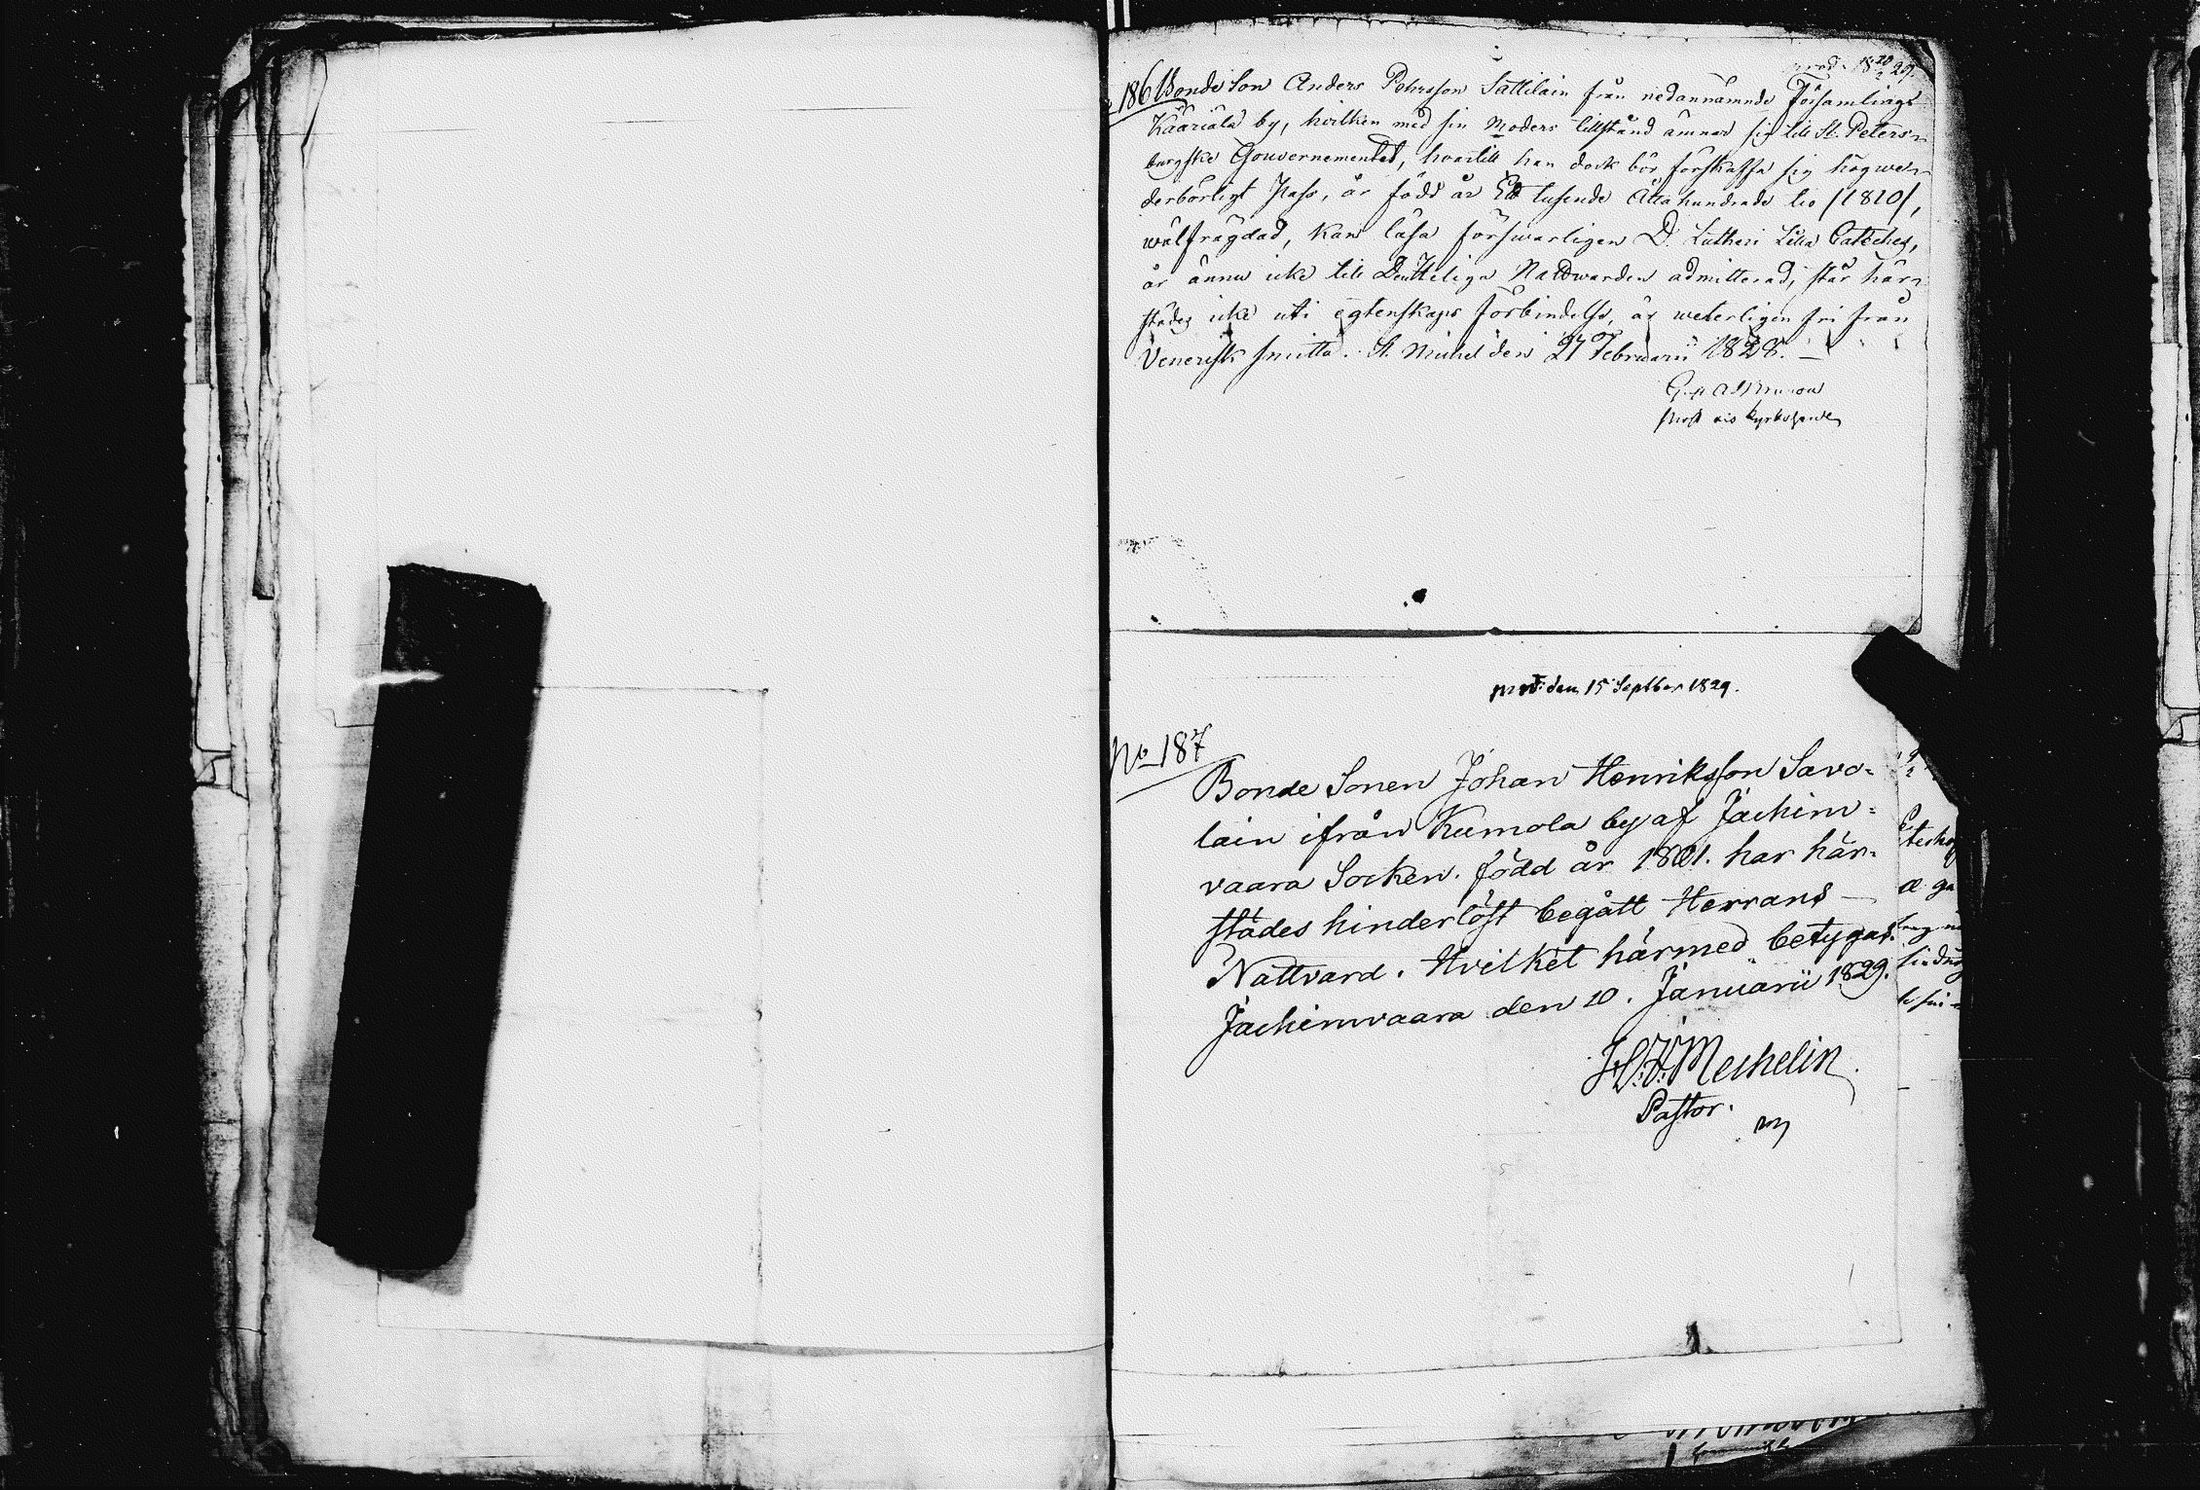 prod. 18 20/2 29.
186 Bonde Son Anders Pehrsson Sattilain från nedannämnde Församlings
Kääriälä by, hvilken med sin Moders tillstånd ämnar sig till St. Peters-
burgske Gouvernementet, hvartill han dock bör förskaffa sig
derbörligt Pass, är född år Ett tusende Åtta hundrade tio /1810/,
wälfrägdad, kan läsa förswarligen D. Lutheri Lilla Cateches,
är ännu icke till Nattwarden admitterad, står här-
städes icke uti egtenskaps förbindelse, är weterligen fri från
Venerisk smitta. St. Michel den 27 Februarii 1828.
Prost och Kyrkoherde
prod: den 15 Septber 1829.
No 187
Bonde Sonen Johan Henriksson Savo=
lain ifrån Kumola by af Jachim=
vaara Socken. född år 1801. har här=
städes hinderlöst begått Herrans
Nattvard. Hvilket härmed betygas.
Jachimvaara den 10. Januarii 1829.
Mechelin
Pastor.